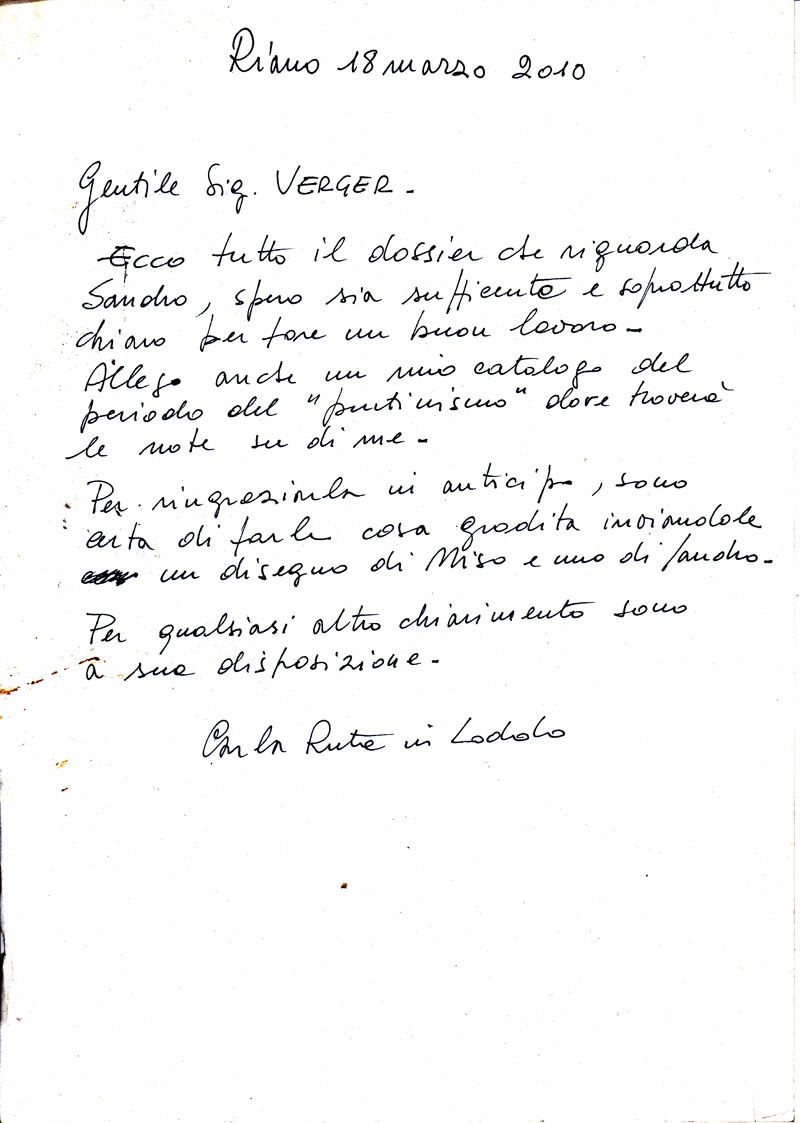 Riano 18 marzo 2010
Gentile Sig. VERGER -
Ecco tutto il dossier che riguarda
Sandro, spero sia sufficente e soprattutto
chiaro per fare un buon lavoro -
Allego anche un mio catalogo del
periodo del "puntinismo" dove troverà
le note su di me -
Per ringraziarla in anticipo, sono
certa di farle cosa gradita inviandole
un disegno di Miso e uno di Sandro -
Per qualsiasi altro chiarimento sono
a sua disposizione -
Carla Ruta in Lodolo